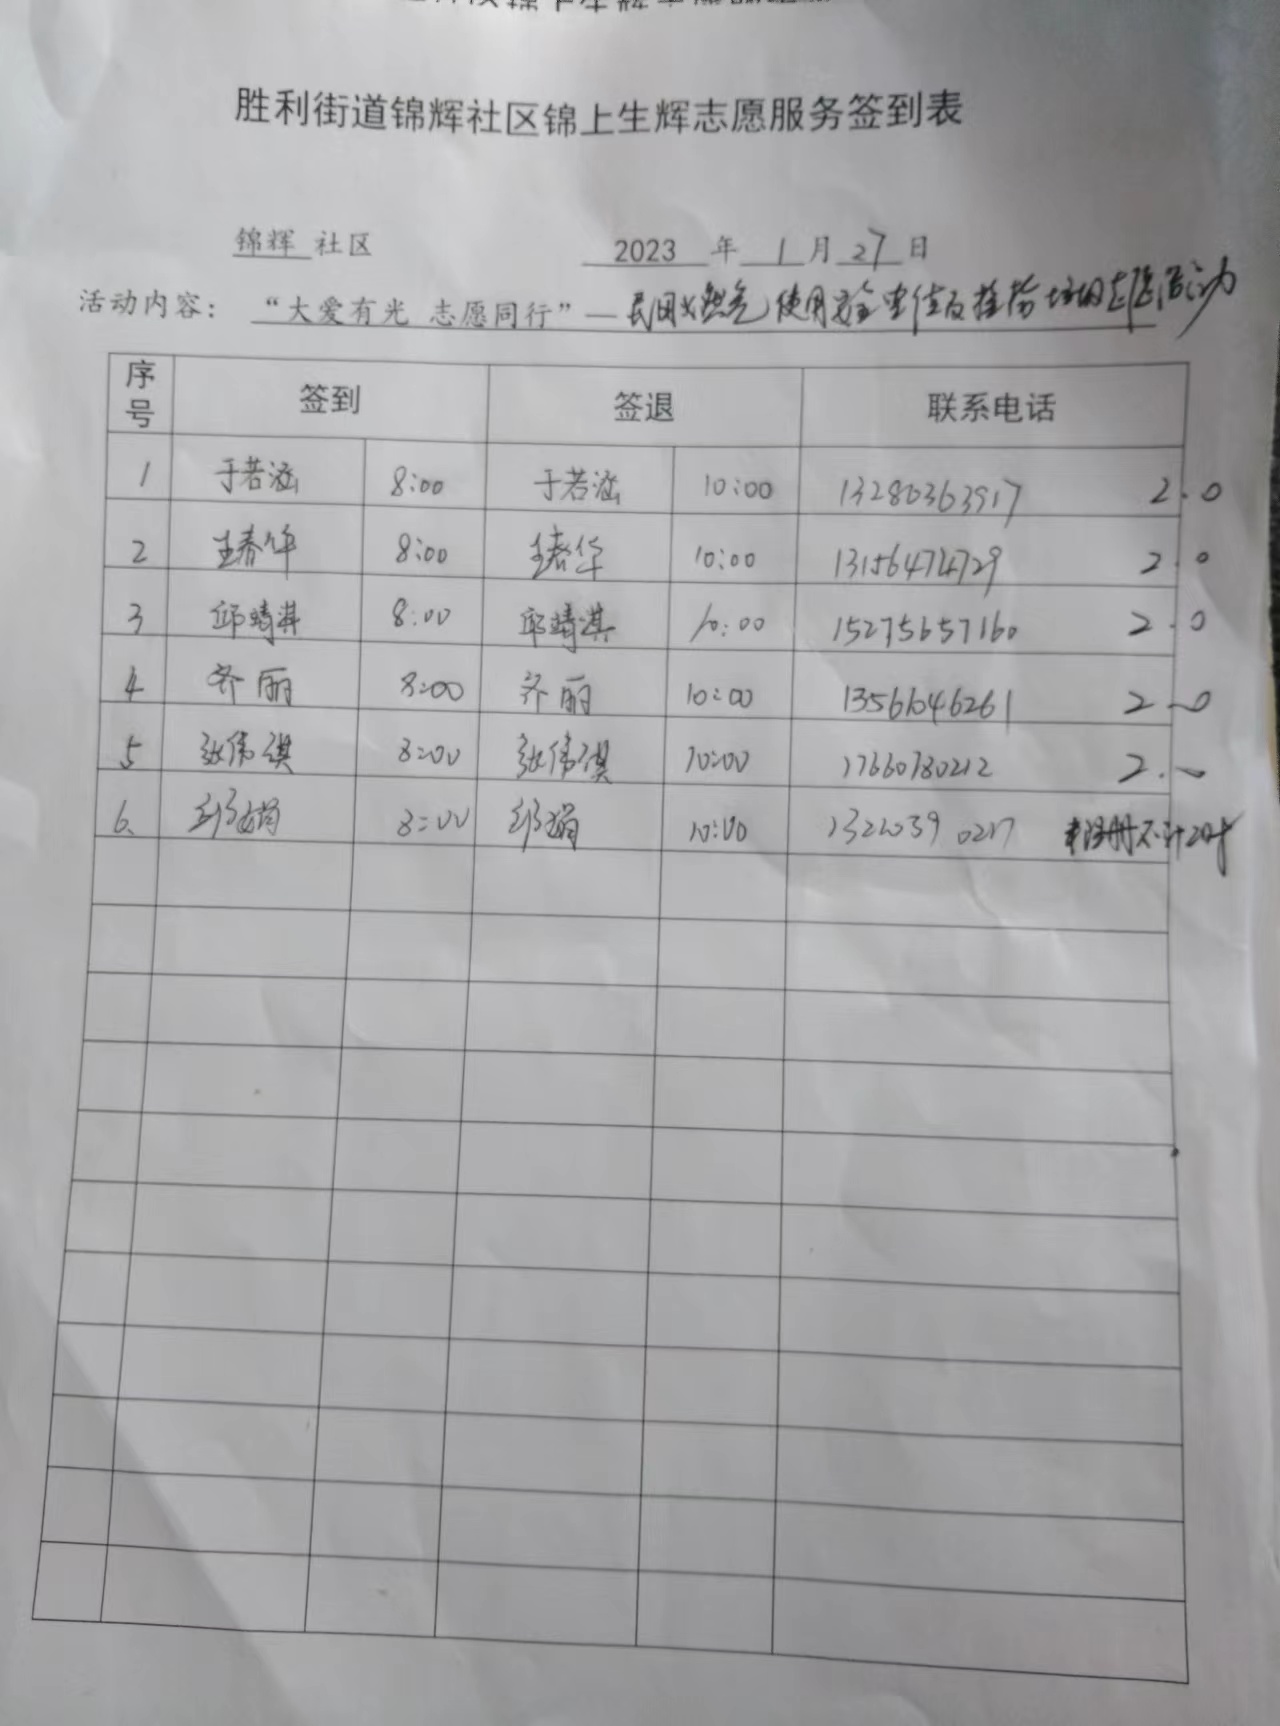 胜利街道锦辉社区锦上生辉志愿服务签到表
锦辉 社区 2023 年 1 月 27 日
活动内容： “大爱有光 志愿同行”— 民用燃气使用安全宣传及 活动
序号 签到 签退 联系电话
1 于若涵 8:00 于若涵 10:00 13280363917 2.0
2 王春华 8:00 王春华 10:00 13156474729 2.0
3 邱靖淇 8:00 邱靖淇 10:00 15275657160 2.0
4 齐丽 8:00 齐丽 10:00 13561046261 2.0
5 张伟祺 8:00 张伟祺 10:00 17660780212 2.0
6、 邱娟 8:00 邱娟 10:00 1321039 0217 未注册不计时